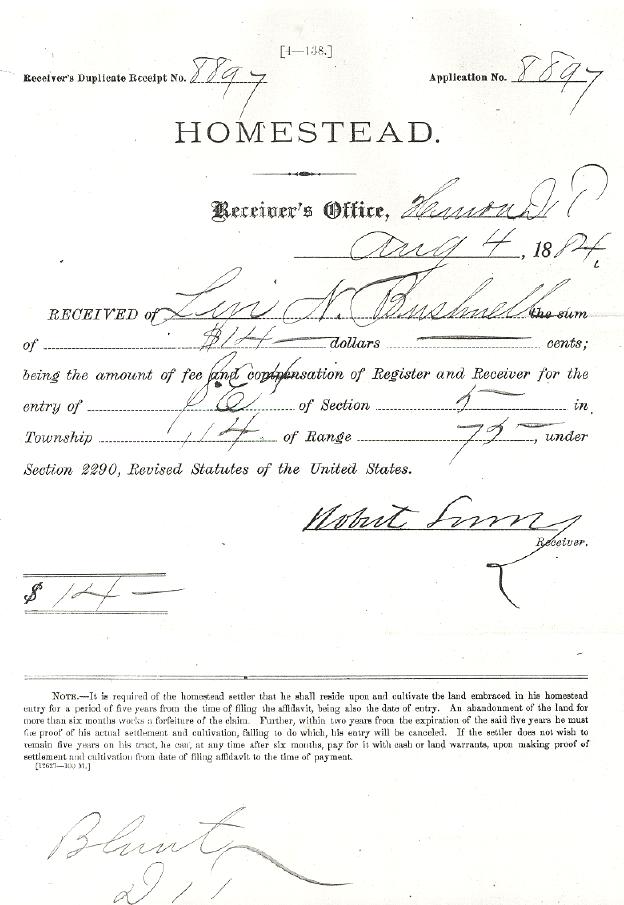 [4—138.]
Receiver's Duplicate Receipt No. 8897 Application No. 8897
HOMESTEAD.
Receiver's Office, Huron D T
Aug 4, 1884.
RECEIVED of Levi N. Bushnell the sum
of $14— dollars — cents;
being the amount of fee and compensation of Register and Receiver for the
entry of S.E. ¼ of Section 5 in
Township 114 of Range 75, under
Section 2290, Revised Statutes of the United States.
Robert
Receiver.
$ 14—
NOTE.—It is required of the homestead settler that he shall reside upon and cultivate the land embraced in his homestead
entry for a period of five years from the time of filing the affidavit, being also the date of entry. An abandonment of the land for
more than six months works a forfeiture of the claim. Further, within two years from the expiration of the said five years he must
file proof of his actual settlement and cultivation, failing to do which, his entry will be canceled. If the settler does not wish to
remain five years on his tract, he can, at any time after six months, pay for it with cash or land warrants, upon making proof of
settlement and cultivation from date of filing affidavit to the time of payment.
Blunt